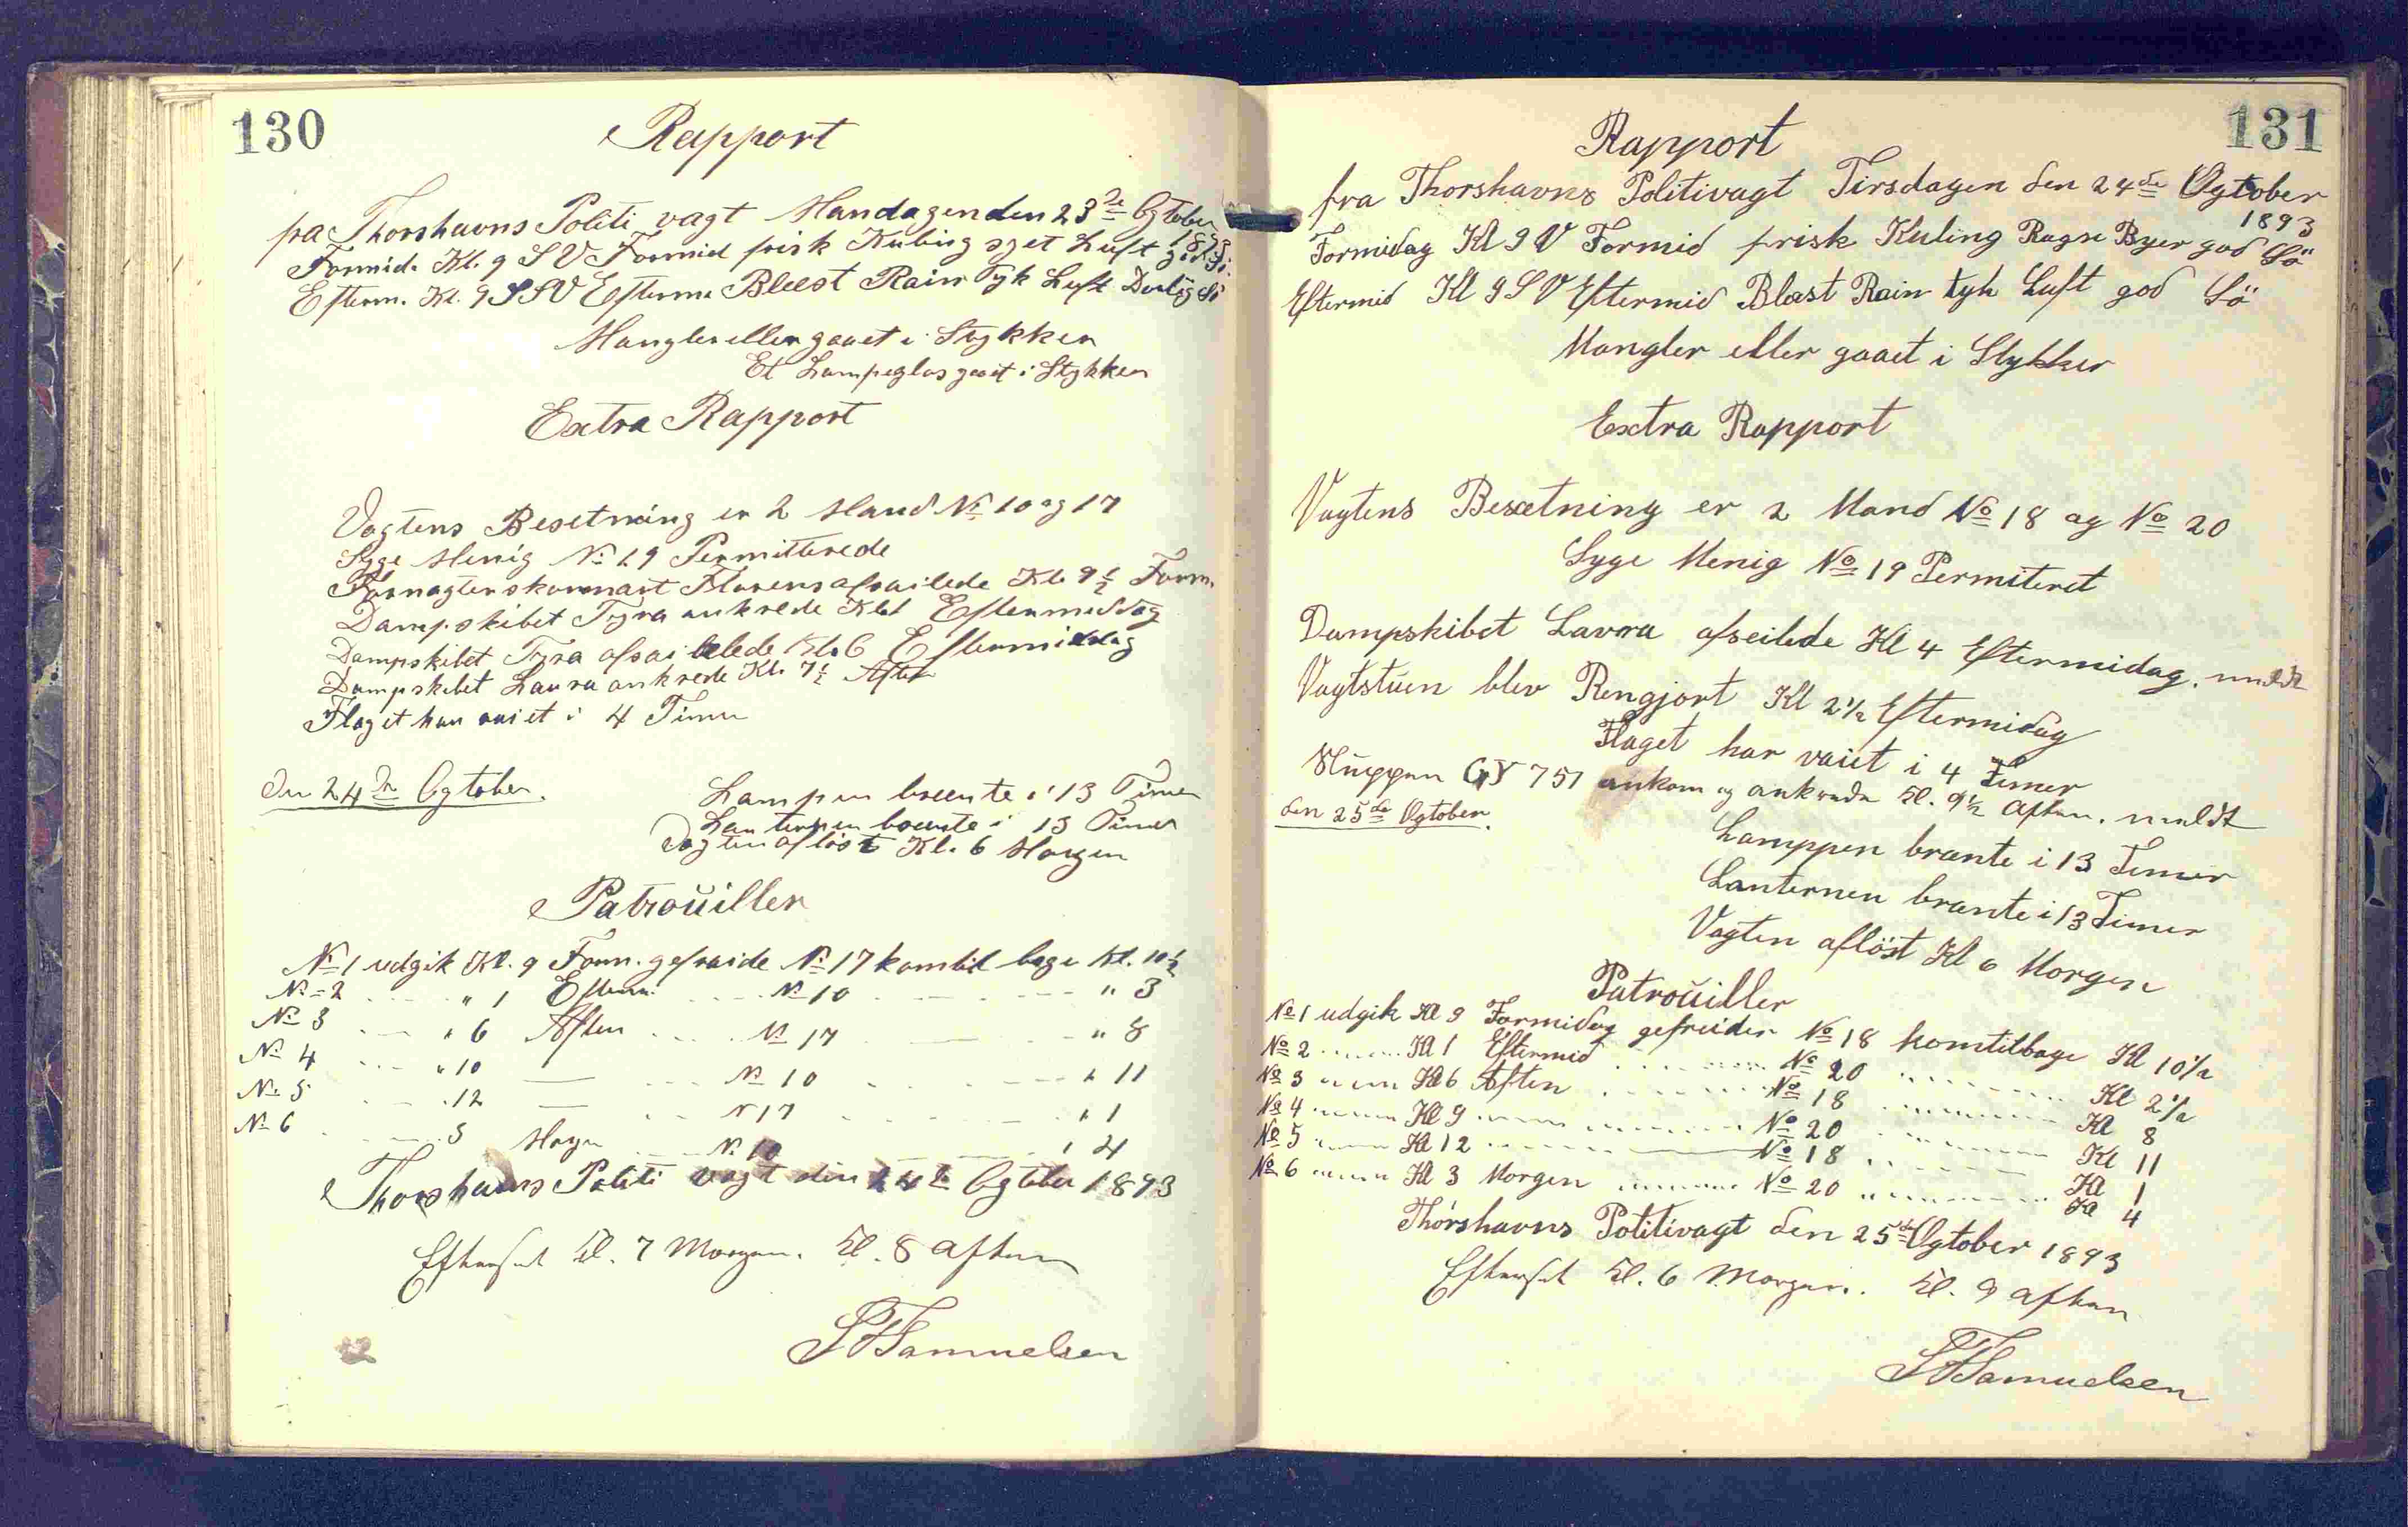 130
Rapport
pa Thorshavns Politi vagt Mandagen den 23de Ogtober
1893
Formid. Kl. 9 S V Formid frisk Kuling sget Luft god Sö
Efterm. Kl. 9 SSV Efterm. Blæst Rain Tyk Luft Dorlig Sö
Mangler eller gaaet i Stykker
Et Lampeglas gaaet i Stykker
Extra Rapport
Vagtens Besetning er 2 Mand No 10 og 17
Syge Menig No 19 Permitterede
Florens afsailede Kl. 9½ Form.
Dampskibet Tyra ankrede Kl 1 Eftermiddag
Dampskibet Tyra afsailelede Kl. 6 Eftermiddag
Dampskibet Laura ankrede Kl. 7½ Aften
Flaget han vaiet i 4 Timer
Den 24de Ogtober.
Lampen brente i 13 Timer
Lanternen brente i 13 Timer
Vagten aflöst Kl. 6 Morgen
Patrouiller
No 1 udgik Kl. 9 Form. gefraide No 17 kom til bage Kl. 10½
No 2 " 1 Efterm. No 10 " 3
No 3 " 6 Aften No 17 " 8
No 4 " 10 — No 10 " 11
No 5 " 12 — N 17 " 1
No 6 3 Morgen No 10 " 4
Thorshavns Politi vagt den 24de Ogtober 1893
Efterset Kl. 7 Morgen. Kl. 8 Aften
Samuelsen
131
Rapport
fra Thorshavns Politivagt Tirsdagen den 24de Ogtober
1893
Formidag Kl 9 V Formid frisk Kuling Ragn Byer god Sö
Eftermid Kl 9 S V Eftermid Blæst Rain tyk Luft god Sö
Mangler eller gaaet i Stykker
Extra Rapport
Vagtens Besætning er 2 Mand No 18 og No 20
Syge Menig No 19 Permiteret
Dampskibet Lavra afseilede Kl 4 Eftermidag. meldt
Vagtstuen blev Rengjort Kl 2½ Eftermidag
Flaget har vaiet i 4 Timer
Sluppen GY 751 ankom og ankrede Kl. 9½ Aften. meldt
den 25de Ogtober.
Lamppen brante i 13 Timer
Lanternen brante i 13 Timer
Vagten aflöst Kl 6 Morgen
Patrouiller
No 1 udgik Kl 9 Formidag gefreider No 18 komtilbage Kl 10½
No 2 Kl 1 Eftermid No 20 Kl 2½
No 3 Kl 6 Aften No 18 Kl 8
No 4 Kl 9 No 20 Kl 11
No 5 Kl 12 No 18 Kl 1
No 6 Kl 3 Morgen No 20 Kl 4
Thorshavns Politivagt den 25de Ogtober 1893
Efterset Kl. 6 Morgen. Kl. 9 Aften
Samuelsen